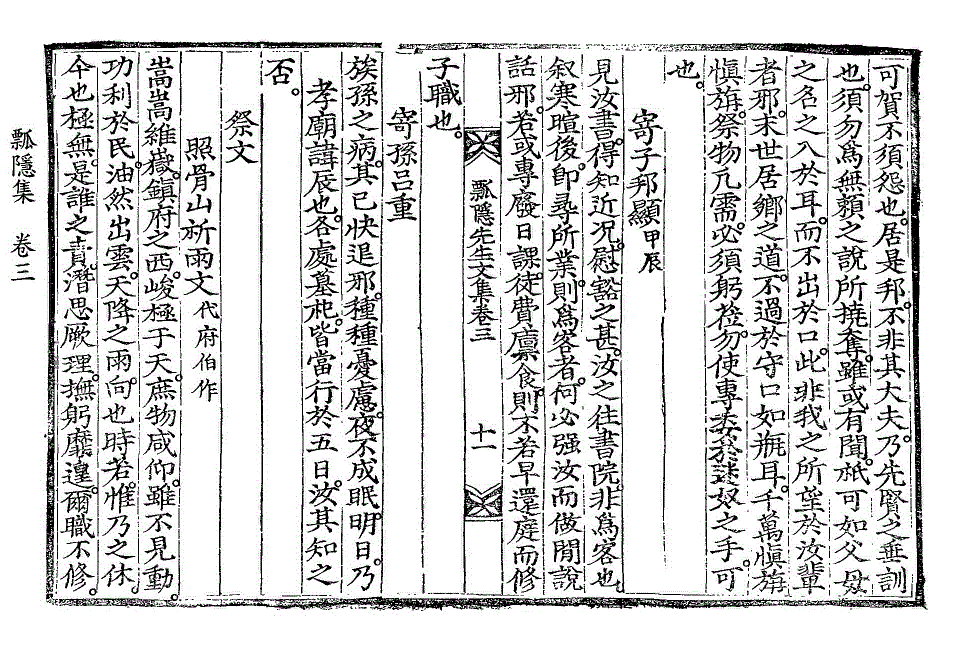 可賀不須怨也。居是邦。不非其大夫。乃先賢之垂訓
也。須勿爲無賴之說所撓奪。雖或有聞。祇可如父母
之名之入於耳。而不出於口。此非我之所望於汝輩
者邪。末世居鄉之道。不過於守口如甁耳。千萬愼旃
愼旃。祭物凡需。必須躬莅。勿使專委於迷奴之手。可
也。
寄子邦顯甲辰
見汝書。得知近況。慰豁之甚。汝之往書院。非爲客也。
叙寒暄後。卽尋所業。則爲客者。何必强汝而做閒說
話邪。若或專廢日課。徒費廩食。則不若早還庭而修
瓢隱先生文集卷三 十一
子職也。
寄孫呂重
族孫之病。其已快退邪。種種憂慮。夜不成眠。明日。乃
孝廟諱辰也。各處墓祀。皆當行於五日。汝其知之
否。
祭文
照骨山祈雨文代府伯作
嵩嵩維嶽。鎭府之西。峻極于天。庶物咸仰。雖不見動。
功利於民。油然出雲。天降之雨。向也時若。惟乃之休。
今也極無。是誰之責。潛思厥理。撫躬靡遑。爾職不修。
瓢隱集 卷三